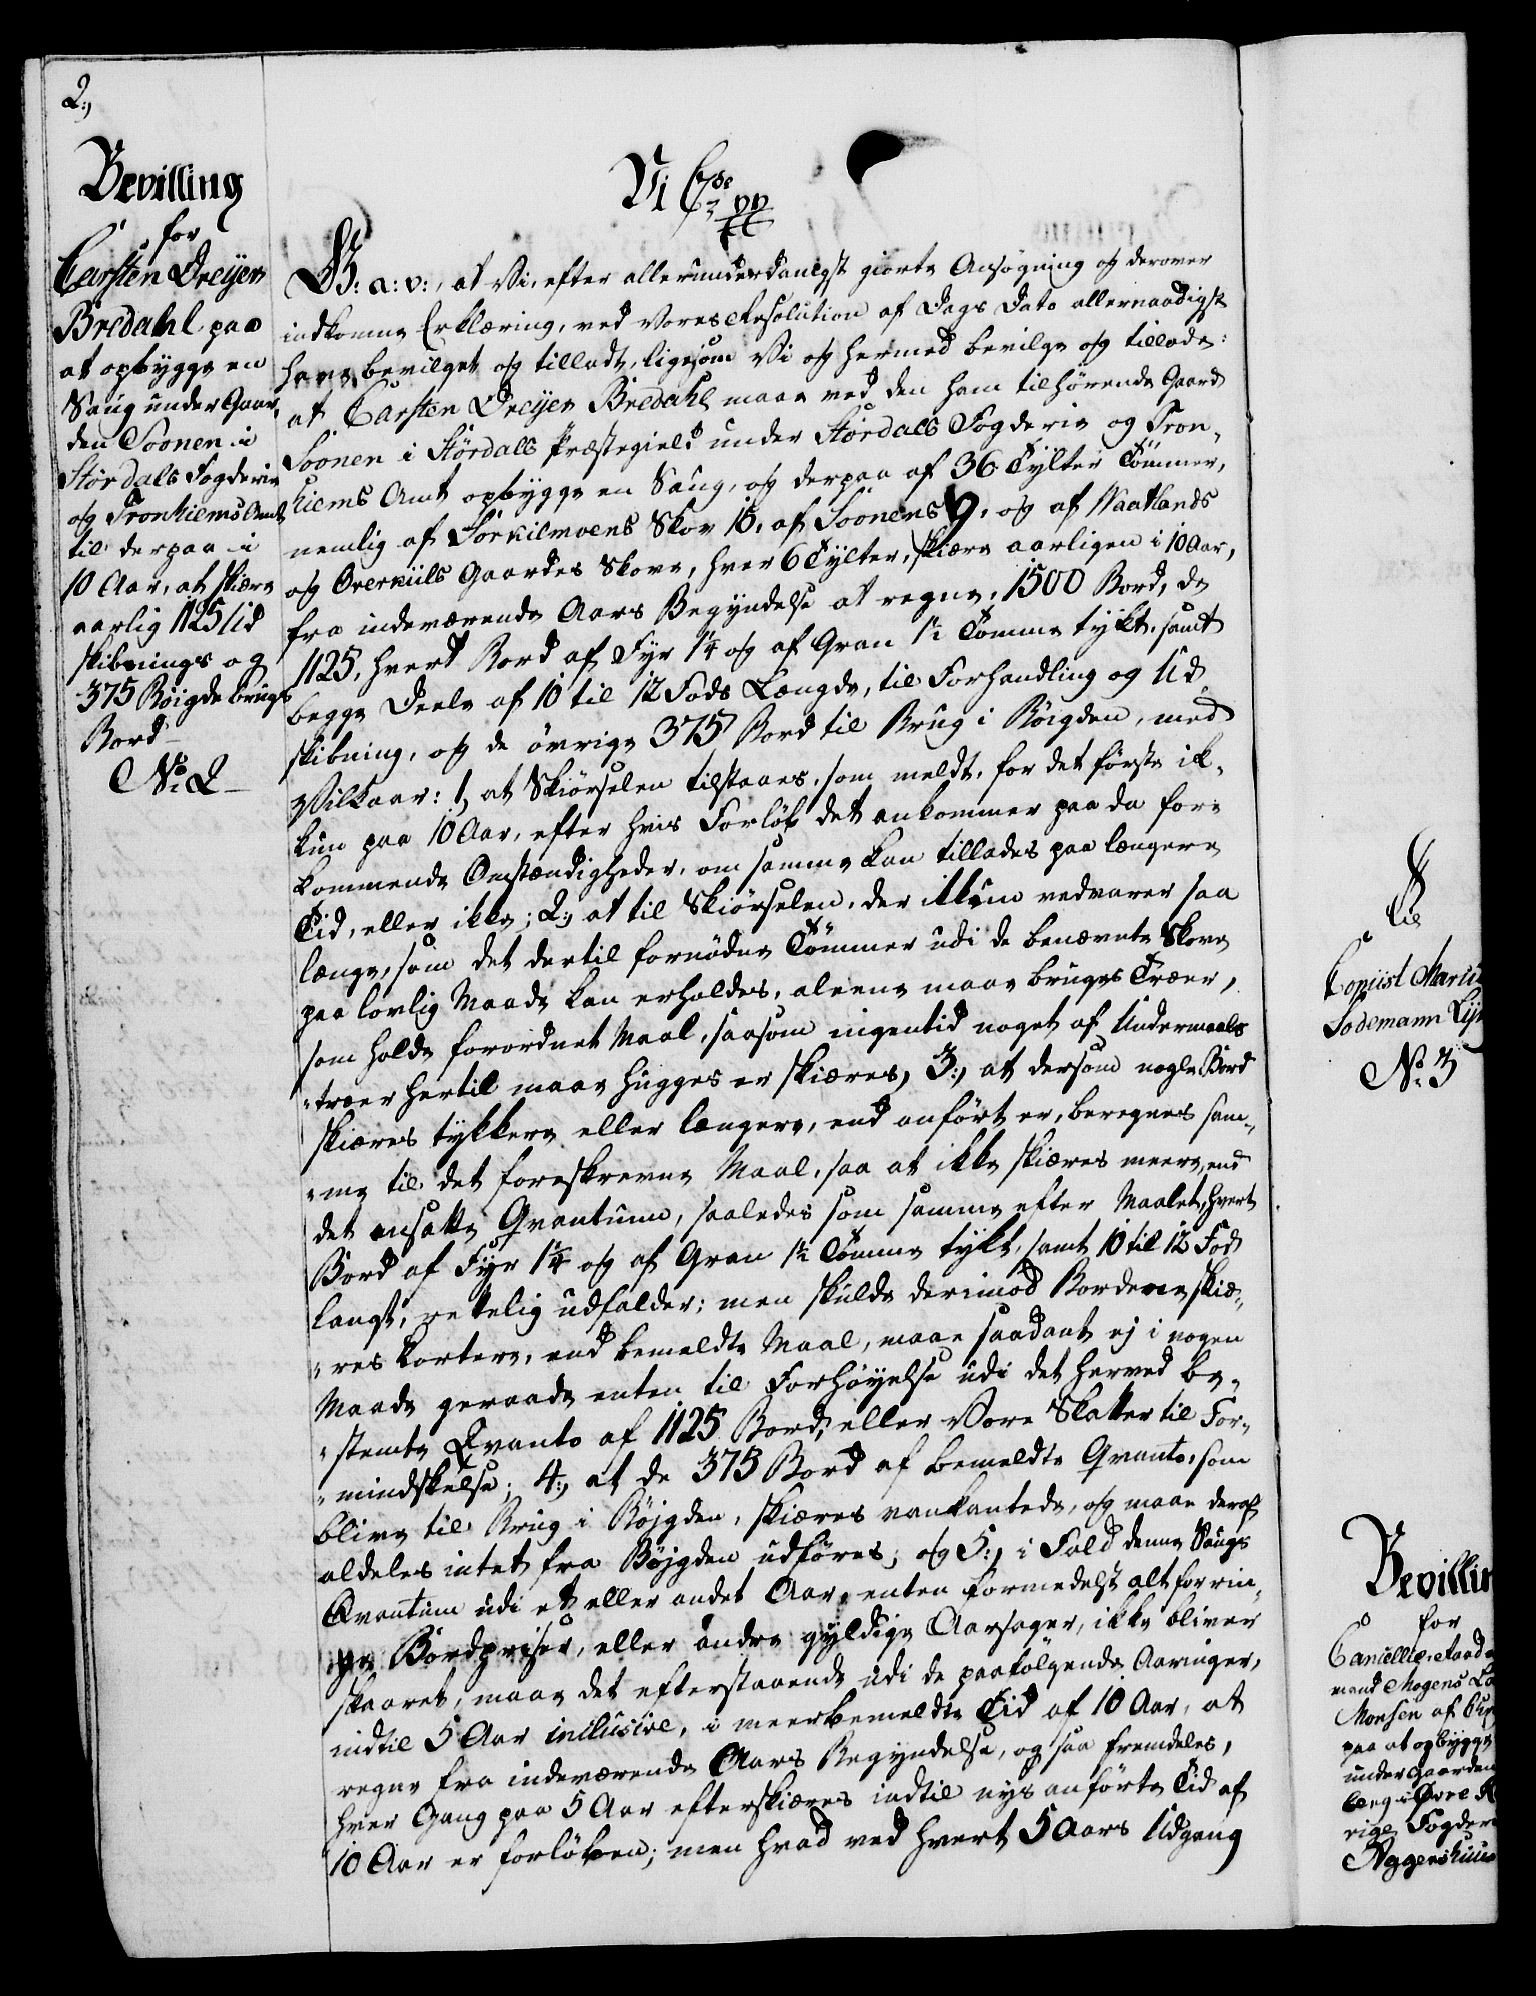 2.,
Bevilling
for
Carsten Dreÿer
Bredahl paa
at opbygge en
Saug under Gaar,
den Soonen i
Stördals Fogderie
og Tronhiems Amt
til derpaa i
10 Aar, at skiære
aarlig 1125 Ud
skibnings og
375 Böigde brugs
Bord
No. 2
Vi C7de pp
G: a: v:, at Vi, efter allerunderdanigst giorte Ansøgning og derover
indkomne Erklæring, ved Vores Resolution af Dags Dato allernaadigst
have bevilget og tilladt, ligesom Vi og hermed bevilge og tillade:
at Carsten Dreÿer Bredahl maae ved den ham tilhørende Gaard
Soonen i Stördals Præstegield under Stördals Fogderie og Tron,
hiems Amt opbygge en Saug, og derpaa af 36 Tylter Tömmer,
nemlig af Sörkilmoens Skov 15, af Soonens 9, og af Naatlands
og Overkiils Gaardes Skove, hver 6 Tylter, skiære aarligen i 10 Aar,
fra indeværende Aars Begyndelse at regne, 1500 Bord, de
1125, hvert Bord af Fyr 1¼ og af Gran 1½ Tomme tykt, samt
begge Deele af 10 til 12 Fods Længde, til Forhandling og Ud,
skibning, og de övrige 375 Bord til Brug i Böigden, med
Vilkaar: 1, at Skiørselen tilstaaes, som meldt, for det første ik,
kun paa 10 Aar, efter hvis Forløb det ankommer paa da fore
kommende Omstændigheder, om samme kan tillades paa længere
Tid, eller ikke; 2., at til Skiørselen, der ikkun vedvarer saa
længe, som det dertil fornödne Tömmer udi de benævnte Skove
paa lovlig Maade kan erholdes, alene maae bruges Træer,
som holde forordnet Maal, saasom ingentid noget af Undermaals
"træer hertil maae hugges er skiæres, 3., at dersom nogle Bord
skiæres tykkere eller længere, end anført er, beregnes sam,
"me til det foreskrevne Maal, saa at ikke skiæres meere, end
det ansatte Qvantum, saaledes som samme efter Maalet, hvert
Bord af Fyr 1¼ og af Gran 1½ Tomme tykt, samt 10 til 12 Fod
langt, rettelig udfalder; men skulde derimod Bordene skiæ,
"res kortere, end bemeldte Maal, maae saadant ej i nogen
Maade geraade enten til Forhöyelse udi det herved be,
"stemte Qvanto af 1125 Bord, eller Vore Skatter til For,
"mindskelse; 4., at de 375 Bord af bemeldte Qvanto, som
blive til Brug i Böjgden, skiæres vankantede, og maae deraf
aldeles intet fra Böjgden udføres; og 5., i Fald denne Saugs
Qvantum udi et eller andet Aar, enten formedelst alt for rin,
ge Bordpriser, eller andre gyldige Aarsager, ikke bliver
skaaret, maae det efterstaaende udi de paafölgende Aaringer,
indtil 5 Aar inclusive, i meerbemeldte Tid af 10 Aar, at
regne fra indeværende Aars Begyndelse, og saa fremdeles,
hver Gang paa 5 Aar efterskiæres indtil nys anførte Tid af
10 Aar er forløben; men hvad ved hvert 5 Aars Udgang
til
Copiist
Sodemann
No. 3
Bevillin
for
Cancellie Raad
mand Mogens
Monsen af
paa at opbygge
under Gaarden
berg i Övre R
rige Fogderie
Aggershuus